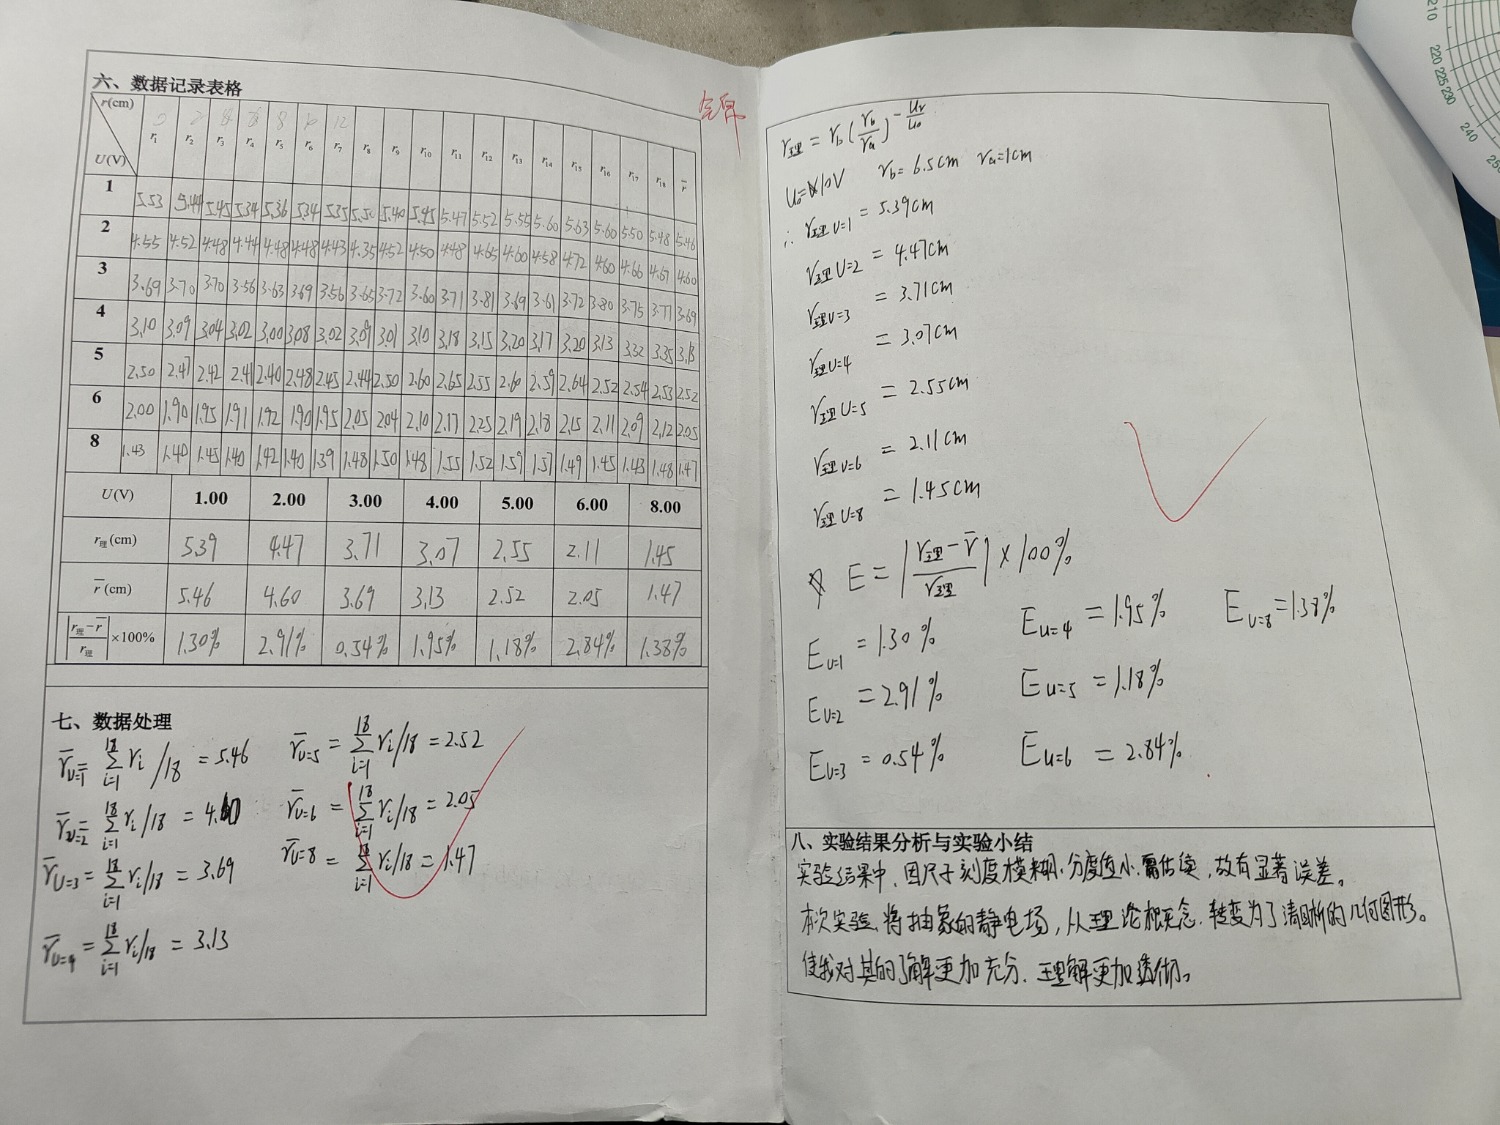 六、数据记录表格
r(cm) r₁ r₂ r₃ r₄ r₅ r₆ r₇ r₈ r₉ r₁₀ r₁₁ r₁₂ r₁₃ r₁₄ r₁₅ r₁₆ r₁₇ r₁₈ r̄
U(V)
1 5.53 5.44 5.45 5.34 5.36 5.34 5.35 5.50 5.40 5.45 5.47 5.52 5.55 5.60 5.63 5.60 5.50 5.48 5.46
2 4.55 4.52 4.48 4.44 4.48 4.48 4.43 4.35 4.52 4.50 4.48 4.65 4.60 4.58 4.72 4.60 4.66 4.67 4.60
3 3.69 3.70 3.70 3.56 3.63 3.69 3.56 3.65 3.72 3.60 3.71 3.81 3.69 3.61 3.72 3.80 3.75 3.77 3.69
4 3.10 3.09 3.04 3.02 3.00 3.08 3.02 3.09 3.01 3.10 3.18 3.15 3.20 3.17 3.20 3.13 3.32 3.35 3.13
5 2.50 2.47 2.42 2.41 2.40 2.48 2.45 2.44 2.50 2.60 2.65 2.55 2.60 2.59 2.64 2.52 2.54 2.53 2.52
6 2.00 1.90 1.95 1.91 1.92 1.90 1.95 2.05 2.04 2.10 2.17 2.25 2.19 2.18 2.15 2.11 2.09 2.12 2.05
8 1.43 1.40 1.45 1.40 1.42 1.40 1.39 1.48 1.50 1.48 1.55 1.52 1.59 1.57 1.49 1.45 1.43 1.48 1.47
U(V) 1.00 2.00 3.00 4.00 5.00 6.00 8.00
r理(cm) 5.39 4.47 3.71 3.07 2.55 2.11 1.45
r̄(cm) 5.46 4.60 3.69 3.13 2.52 2.05 1.47
|(r理-r̄)/r理|×100% 1.30% 2.91% 0.54% 1.95% 1.18% 2.84% 1.38%
七、数据处理
r̄U=1 = Σ(i=1→18) ri/18 = 5.46
r̄U=2 = Σ(i=1→18) ri/18 = 4.60
r̄U=3 = Σ(i=1→18) ri/18 = 3.69
r̄U=4 = Σ(i=1→18) ri/18 = 3.13
r̄U=5 = Σ(i=1→18) ri/18 = 2.52
r̄U=6 = Σ(i=1→18) ri/18 = 2.05
r̄U=8 = Σ(i=1→18) ri/18 = 1.47
r理 = rb(rb/ra)^(-Ur/U0)
U0=10V rb=6.5cm ra=1cm
∴ r理U=1 = 5.39cm
r理U=2 = 4.47cm
r理U=3 = 3.71cm
r理U=4 = 3.07cm
r理U=5 = 2.55cm
r理U=6 = 2.11cm
r理U=8 = 1.45cm
E = |(r理-r̄)/r理|×100%
EU=1 = 1.30%
EU=2 = 2.91%
EU=3 = 0.54%
EU=4 = 1.95%
EU=5 = 1.18%
EU=6 = 2.84%
EU=8 = 1.38%
八、实验结果分析与实验小结
实验结果中，因尺子刻度模糊.分度值小.需估读，故有显著误差。
本次实验.将抽象的静电场，从理论概念.转变为了清晰的几何图形。
使我对其的了解更加充分.理解更加透彻。
210
220 225 230
240